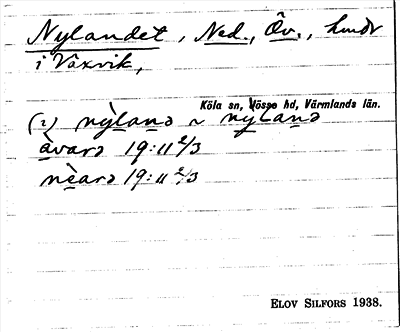 Nylandet, Ned., Öv., hmdr
i Växvik,
Köla sn, Jösse hd, Värmlands län.
(2) nỳlanə ~ nylanə
àvarə 19:11 2/3
nèarə 19:11 2/3
ELOV SILFORS 1938.